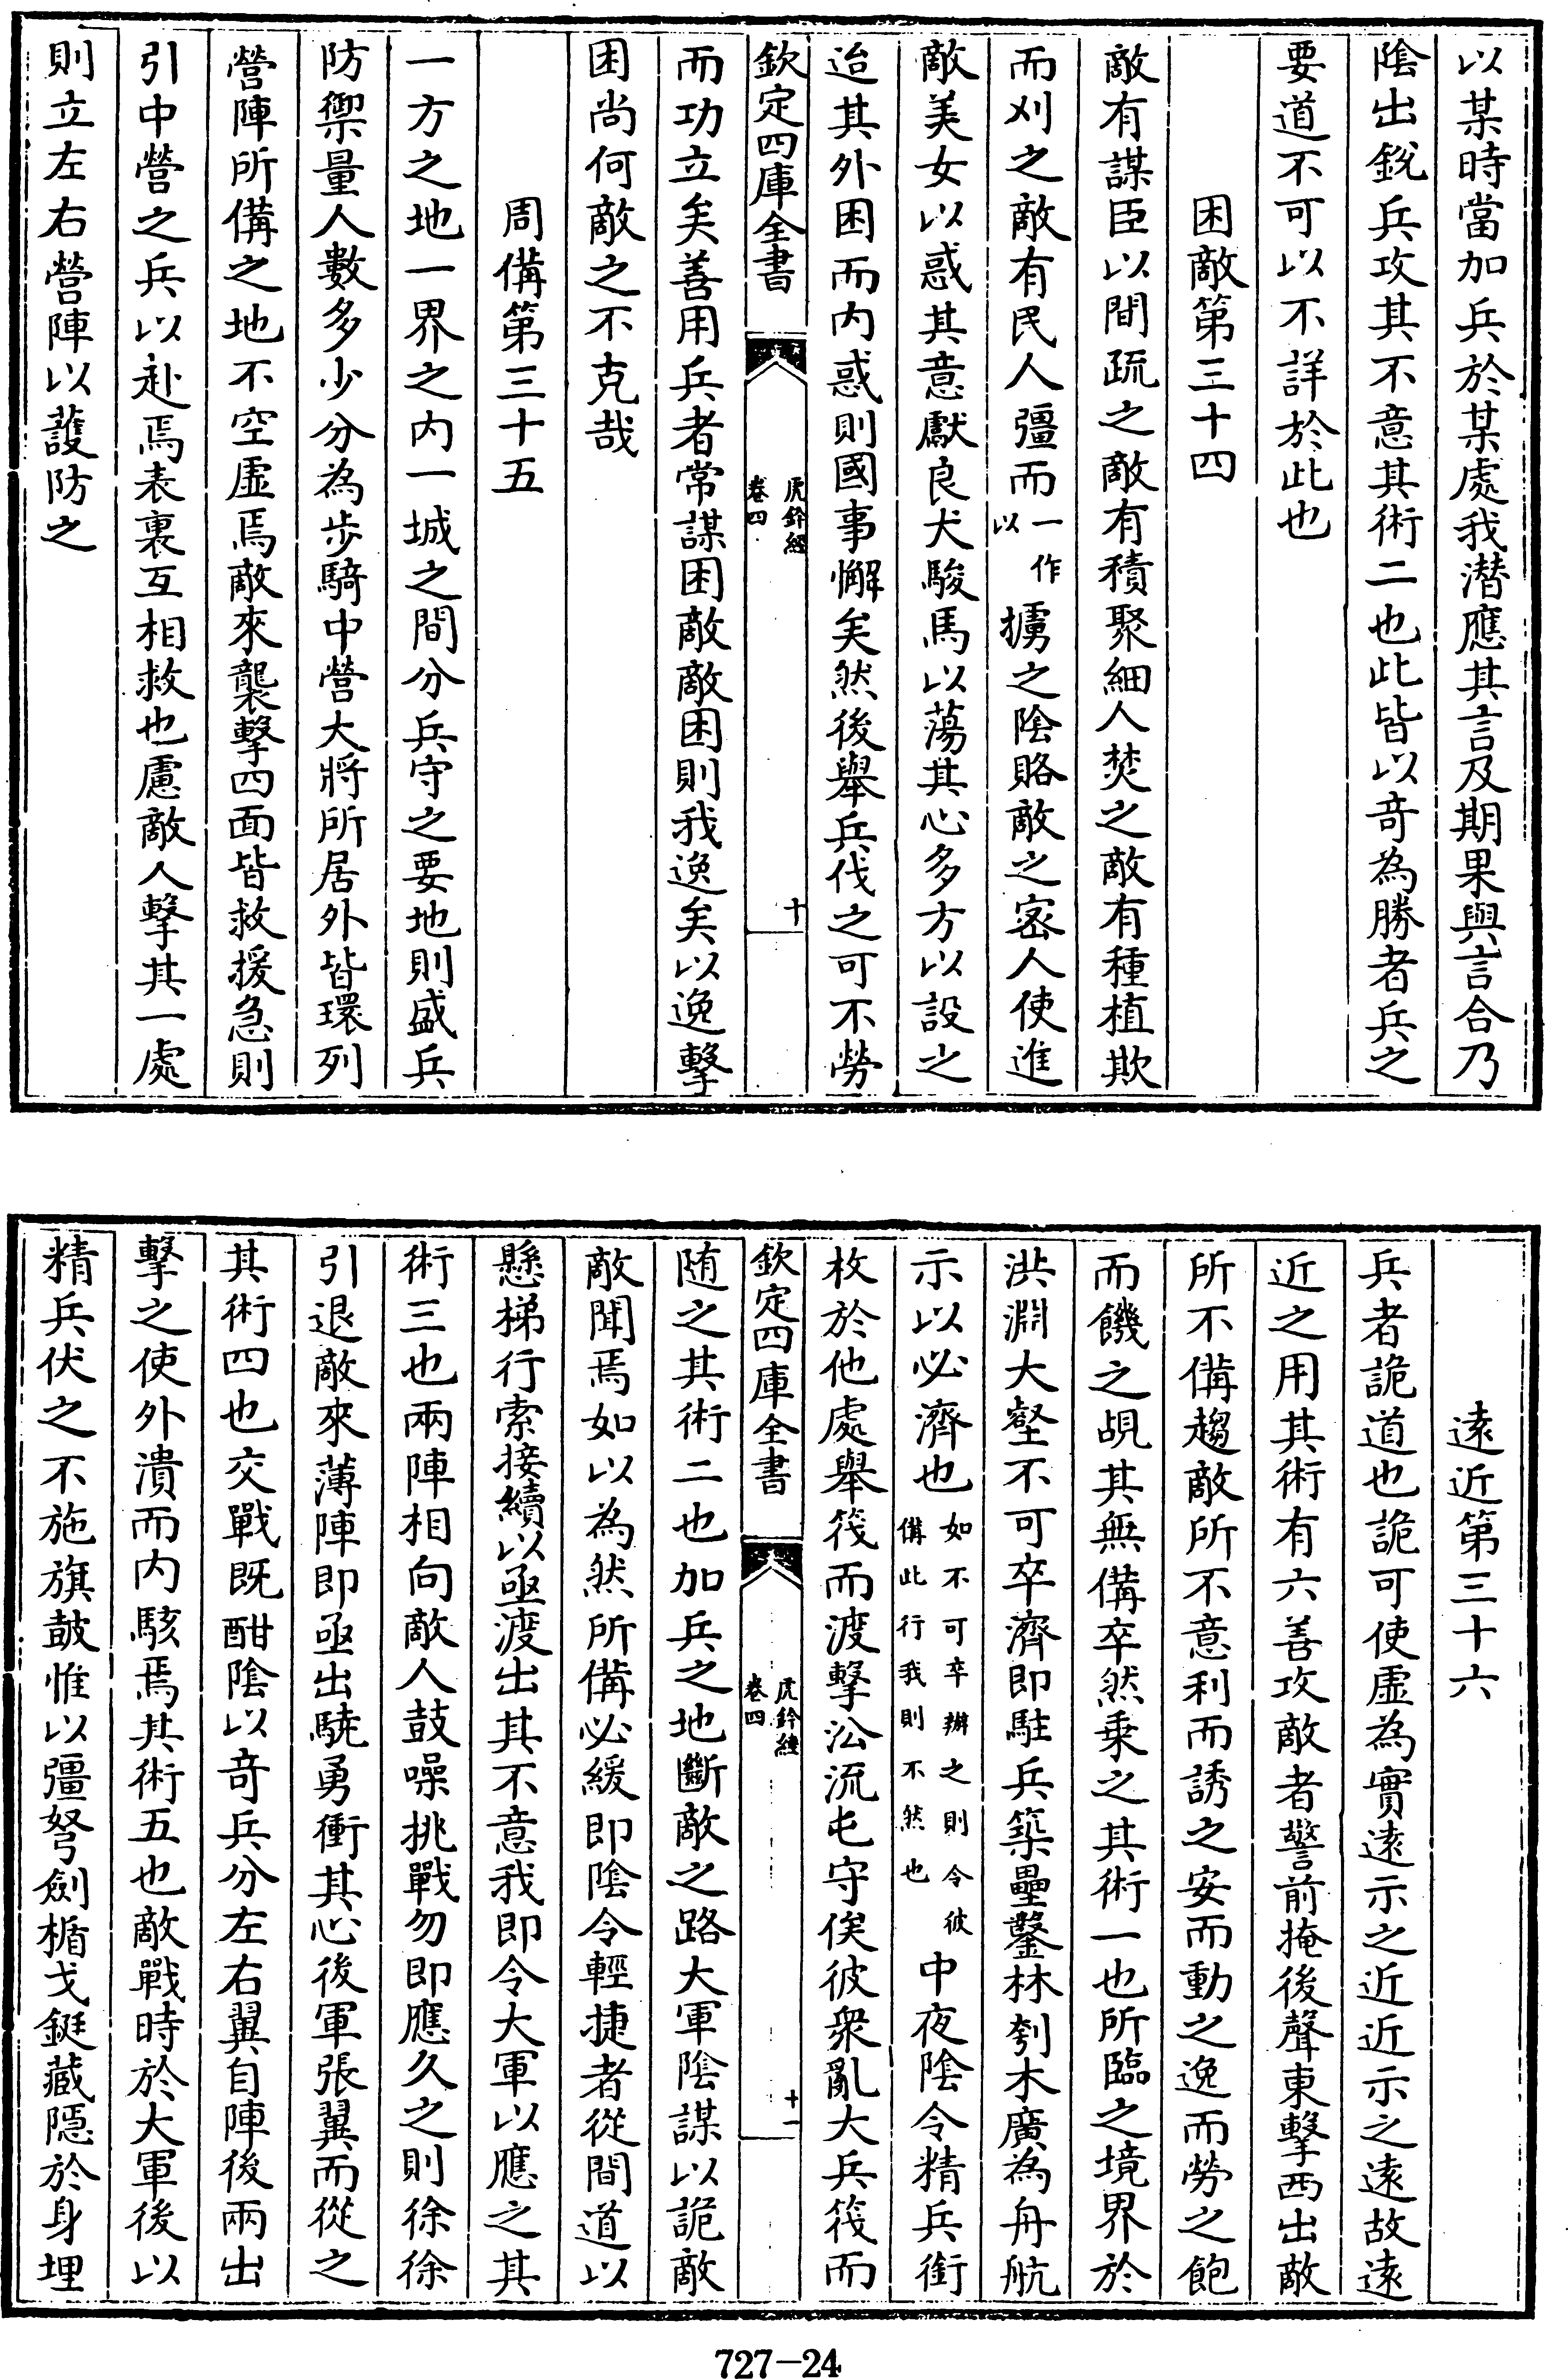 以某時當加兵於某處我潛應其言及期果與言合乃
陰出銳兵攻其不意其術二也此皆以奇為勝者兵之
要道不可以不詳於此也
困敵第三十四
敵有謀臣以間疏之敵有積聚細人焚之敵有種植欺
而刈之敵有民人彊而一作以擄之陰賂敵之密人使進
敵美女以惑其意獻良犬駿馬以蕩其心多方以設之
迨其外困而内惑則國事懈矣然後舉兵伐之可不勞
欽定四庫全書
虎鈐經
卷四
十
而功立矣善用兵者常謀困敵敵困則我逸矣以逸擊
困尚何敵之不克哉
周備第三十五
一方之地一界之内一城之間分兵守之要地則盛兵
防禦量人數多少分為步騎中營大將所居外皆環列
營陣所備之地不空虛焉敵來襲擊四面皆救援急則
引中營之兵以赴焉表裏互相救也慮敵人擊其一處
則立左右營陣以護防之
遠近第三十六
兵者詭道也詭可使虛為實遠示之近近示之遠故遠
近之用其術有六善攻敵者警前掩後聲東擊西出敵
所不備趨敵所不意利而誘之安而動之逸而勞之飽
而饑之覘其無備卒然乗之其術一也所臨之境界於
洪淵大壑不可卒濟即駐兵築壘鑿林刳木廣為舟航
示以必濟也如不可卒辦之則令彼備此行我則不然也中夜陰令精兵銜
枚於他處舉筏而渡擊㳂流屯守俟彼衆亂大兵筏而
欽定四庫全書
虎鈐經
卷四
十一
随之其術二也加兵之地斷敵之路大軍陰謀以詭敵
敵聞焉如以為然所備必緩即陰令輕捷者從間道以
懸梯行索接續以亟渡出其不意我即令大軍以應之其
術三也兩陣相向敵人鼓噪挑戰勿即應久之則徐徐
引退敵來薄陣即亟出驍勇衝其心後軍張翼而從之
其術四也交戰既酣陰以奇兵分左右翼自陣後兩出
擊之使外潰而内駭焉其術五也敵戰時於大軍後以
精兵伏之不施旗鼓惟以彊弩劍楯戈鋋藏隱於身埋
727-24